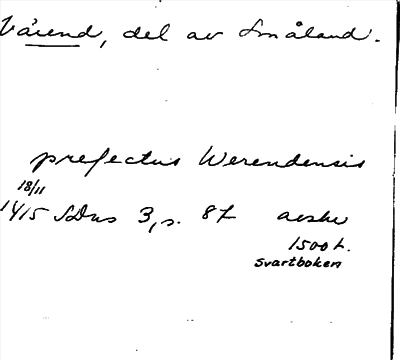 Värend, del av Småland.
prefectus Werendensis
18/11
1415 SDns 3, s. 87 avskr
1500 t.
Svartboken